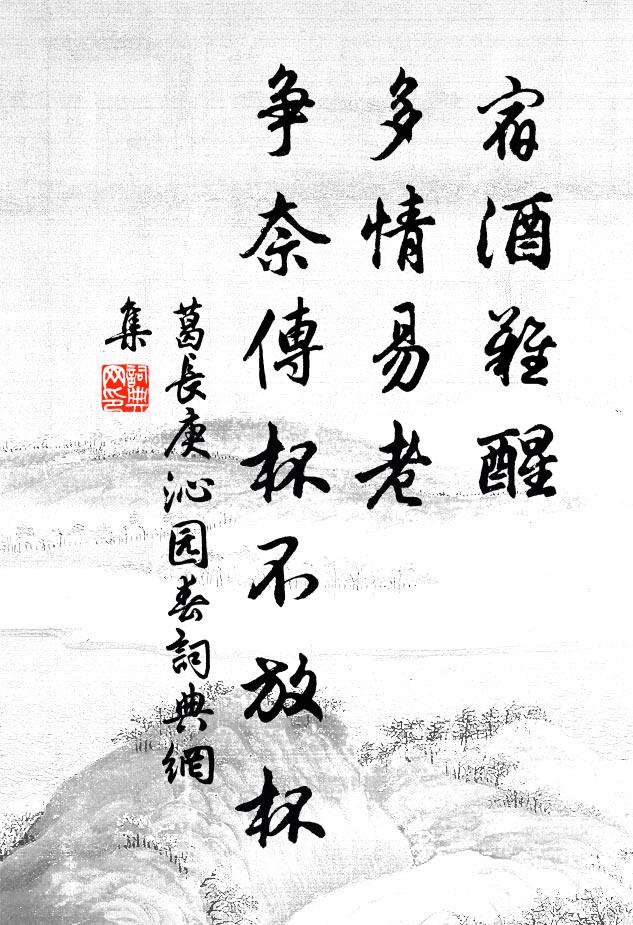 宿酒難醒
多情易老
争奈傳杯不放杯
葛長庚沁园春詞典網
集
詞典
网印